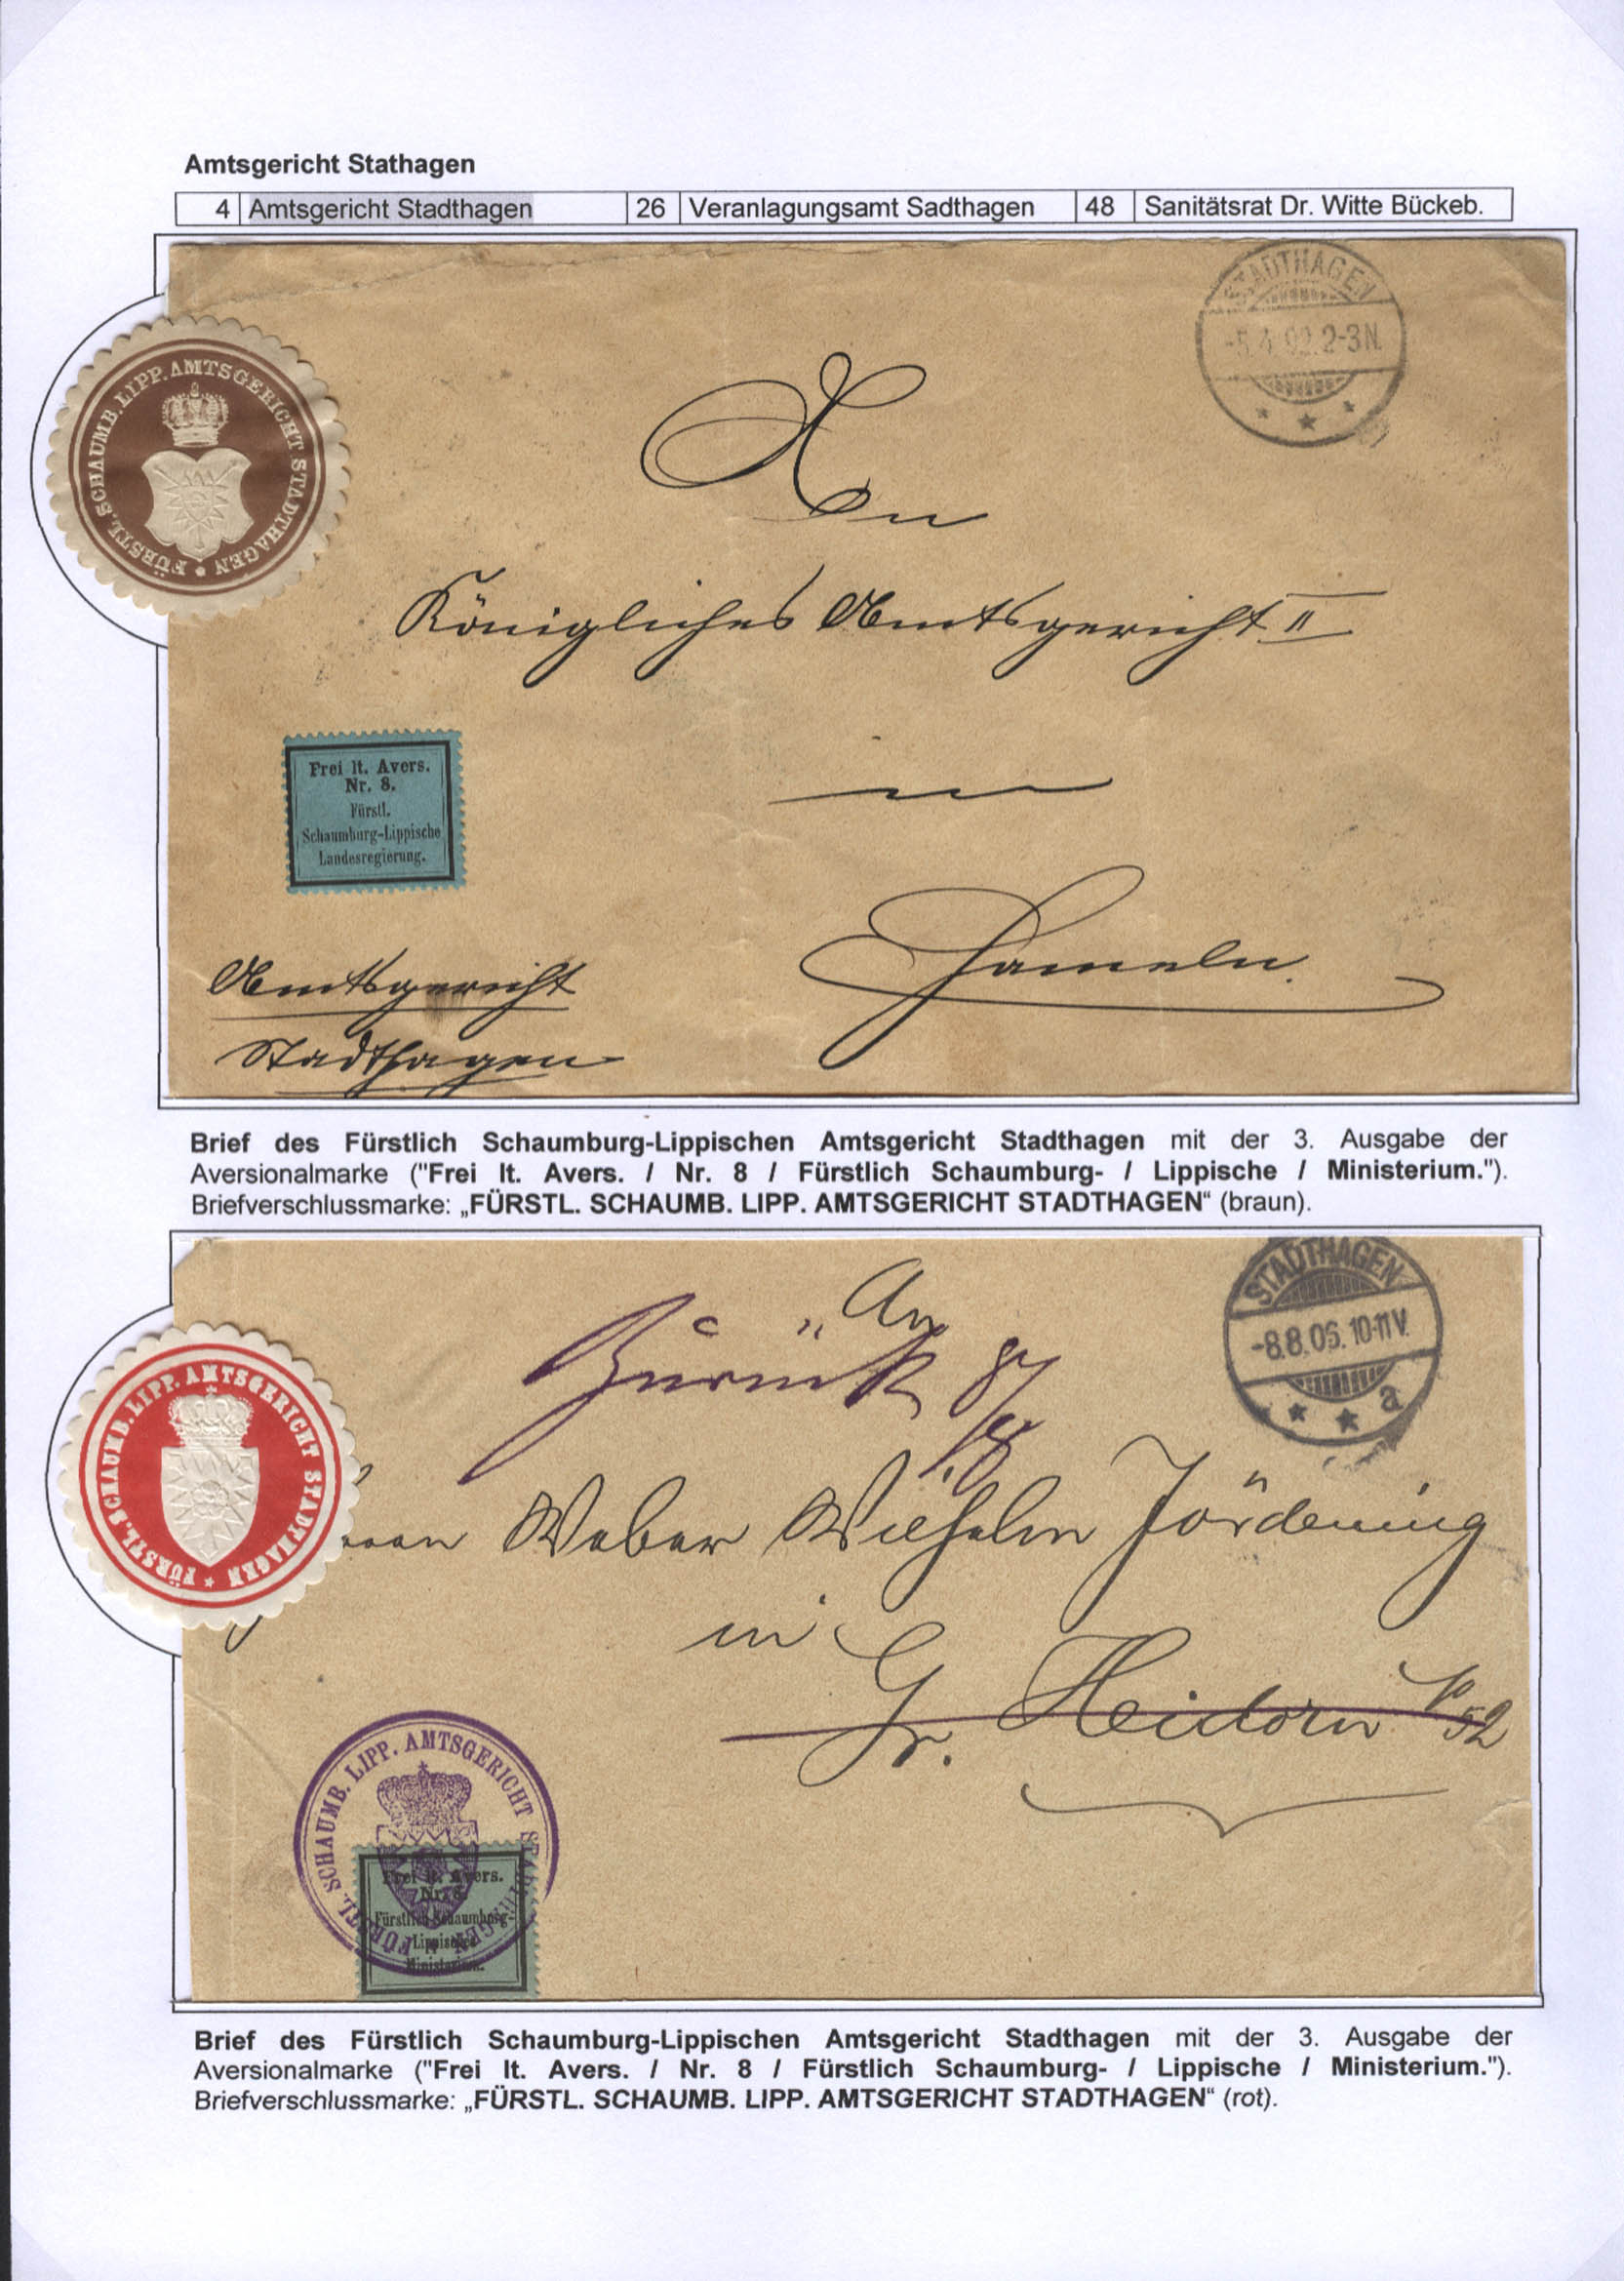 Amtsgericht Stathagen
4 Amtsgericht Stadthagen 26 Veranlagungsamt Sadthagen 48 Sanitätsrat Dr. Witte Bückeb.
STADTHAGEN
2-3N.
FÜRSTL. SCHAUMB. LIPP. AMTSGERICHT STADTHAGEN
An
Königliches Amtsgericht II
in
Hameln.
Frei lt. Avers.
Nr. 8.
Fürstl.
Schaumburg-Lippische
Landesregierung.
Amtsgericht
Stadthagen
Brief des Fürstlich Schaumburg-Lippischen Amtsgericht Stadthagen mit der 3. Ausgabe der
Aversionalmarke ("Frei lt. Avers. / Nr. 8 / Fürstlich Schaumburg- / Lippische / Ministerium.").
Briefverschlussmarke: „FÜRSTL. SCHAUMB. LIPP. AMTSGERICHT STADTHAGEN“ (braun).
STADTHAGEN
-8.8.06.10-11V.
a
An
Zurück 8/8
FÜRSTL. SCHAUMB. LIPP. AMTSGERICHT STADTHAGEN
Weber Wilhelm Jördening
in
Gr. Heidorn No 52
FÜRSTL. SCHAUMB. LIPP. AMTSGERICHT STADTHAGEN
Frei lt. Avers.
Nr. 8.
Fürstlich Schaumburg-
Lippisches
Ministerium.
Brief des Fürstlich Schaumburg-Lippischen Amtsgericht Stadthagen mit der 3. Ausgabe der
Aversionalmarke ("Frei lt. Avers. / Nr. 8 / Fürstlich Schaumburg- / Lippische / Ministerium.").
Briefverschlussmarke: „FÜRSTL. SCHAUMB. LIPP. AMTSGERICHT STADTHAGEN“ (rot).